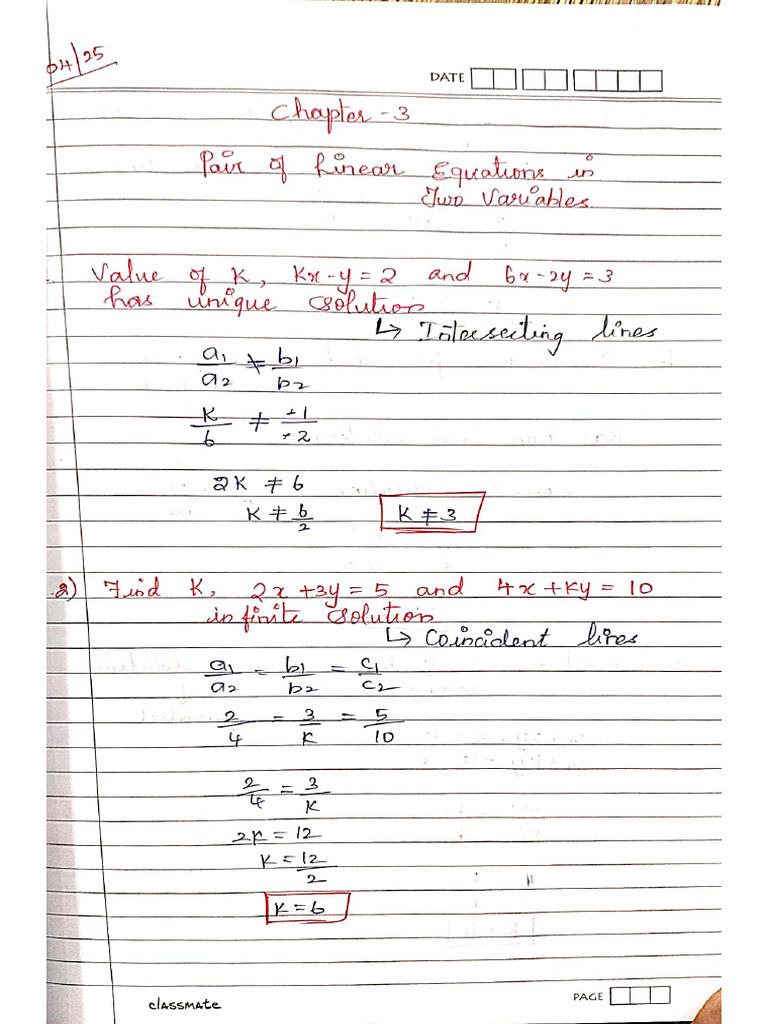 04/25
DATE
Chapter - 3
Pair of Linear Equations in
Two Variables
Value of K, Kx - y = 2 and 6x - 2y = 3
has unique solution
↳ Intersecting lines
a₁/a₂ ≠ b₁/b₂
K/6 ≠ -1/-2
2K ≠ 6
K ≠ 6/2 K ≠ 3
2) Find K, 2x + 3y = 5 and 4x + Ky = 10
infinite solution
↳ Coincident lines
a₁/a₂ = b₁/b₂ = c₁/c₂
2/4 = 3/K = 5/10
2/4 = 3/K
2K = 12
K = 12/2
K = 6
classmate
PAGE